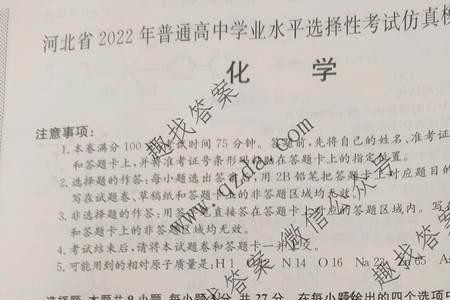 河北省2022年普通高中学业水平选择性考试仿真模
化 学
注意事项:
1.本卷满分100 考试时间75分钟。答题前,先将自己的姓名、准考证
和答题卡上,并将准考证号条形码粘贴在答题卡上的指定位置。
2.选择题的作答:每小题选出答案后,用2B铅笔把答题卡上对应题目的
写在试题卷、草稿纸和答题卡上的非答题区域均无效。
3.非选择题的作答:用签字笔直接答在答题卡上对应的答题区域内。写
和答题卡上的非答题区域均无效。
4.考试结束后,请将本试题卷和答题卡一并上交。
5.可能用到的相对原子质量是:H 1 C 12 N 14 O 16 Na 23
选择题:本题共9小题,每小题3分,共27分。在每小题给出的四个选项中
趣找答案
www.qzda.com
微信公众号
趣找答案